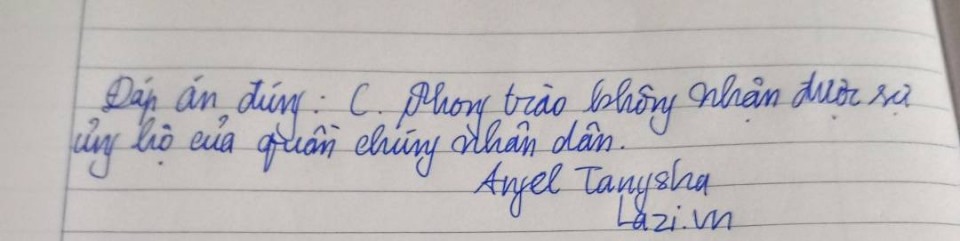 Đáp án đúng: C. Phong trào không nhận được sự
ủng hộ của quần chúng nhân dân.
Angel Tangsha
Lazi.vn